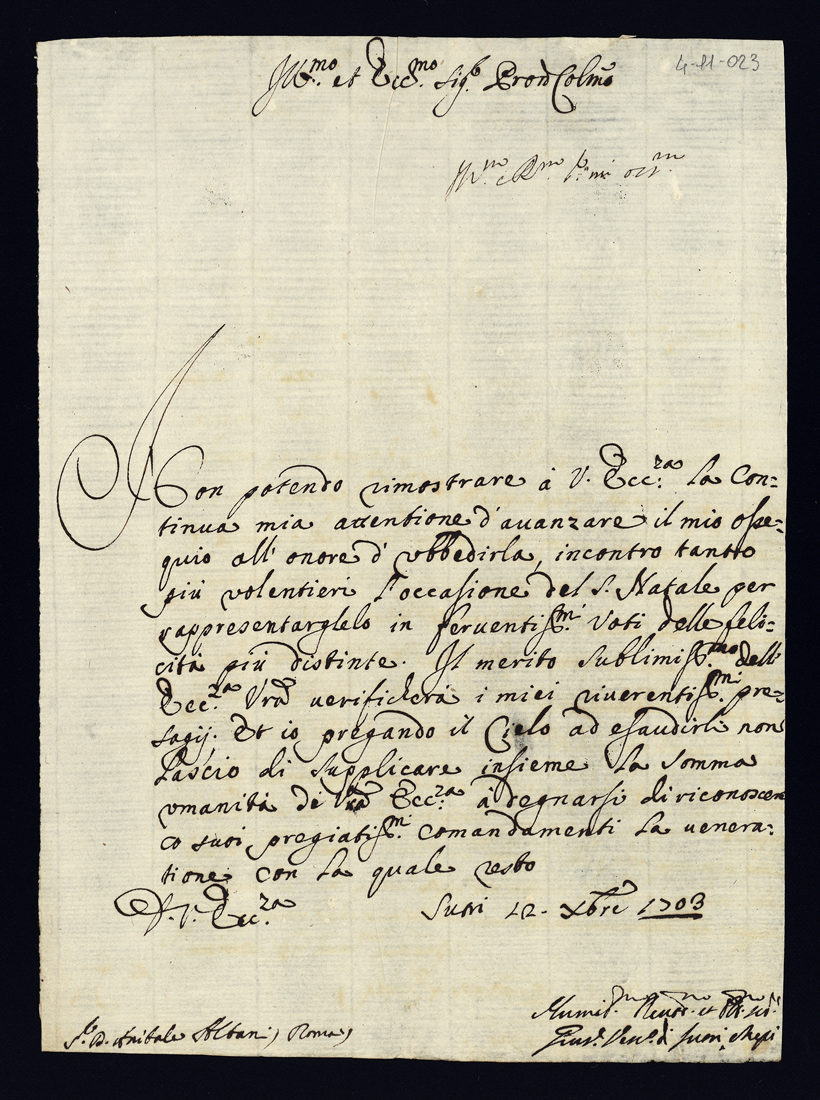 4-11-023
Ill.mo et Ecc.mo Sig.r Pron Colmo
Ill.mo e R.mo
Non potendo rimostrare à V. Ecc.za la Con=
tinua mia attentione d'auanzare il mio osse=
quio all'onore d'vbbedirla, incontro tanto
più volentieri l'occasione del S. Natale per
rappresentarglelo in feruentiss.mi Voti delle feli=
cità più distinte. Il merito sublimiss.mo dell'
Ecc.za Vra verificherà i miei riuerentiss.mi pre=
sagij. Et io pregando il Cielo ad esaudirli non
lascio di supplicare insieme la somma
vmanità di Vra Ecc.za à degnarsi di riconoscere
co suoi pregiatiss.mi comandamenti la uenera=
tione con la quale resto
D. V. Ecc.za
Sutri 12. Xbre 1703
S.r D. Anibale Albani, Roma)
Humil.mo Deuot.mo et
Gius.e Vesc.o di Sutri, e Nepi